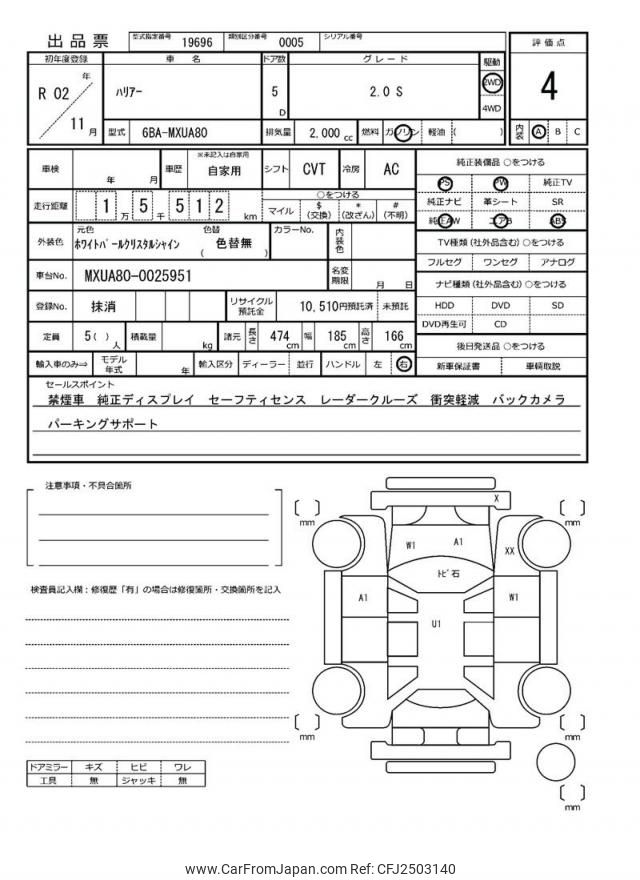 出品票 型式指定番号 19696 類別区分番号 0005 シリアル番号
初年度登録 車 名 ドア数 グレード 駆動 評価点
R 02 年 11 月 ハリアー 5 D 2.0 S 2WD 4WD 4
型式 6BA-MXUA80 排気量 2,000 cc 燃料 ガソリン 軽油 ( ) 内装 A B C
車検 年 月 車歴 ※未記入は自家用 自家用 シフト CVT 冷房 AC
純正装備品 ○をつける
PS PW 純正TV
純正ナビ 革シート SR
純正AW エアB ABS
走行距離 1 万 5 千 5 1 2 km ○をつける
マイル $ (交換) * (改ざん) # (不明)
外装色 元色 ホワイトパールクリスタルシャイン 色替 ( 色替無 ) カラーNo. 内装色
TV種類 (社外品含む) ○をつける
フルセグ ワンセグ アナログ
車台No. MXUA80-0025951 名変期限 月 日
ナビ種類 (社外品含む) ○をつける
HDD DVD SD
DVD再生可 CD
登録No. 抹消 リサイクル預託金 10,510円預託済 未預託
定員 5( ) 人 積載量 kg 諸元 長さ 474 cm 幅 185 cm 高さ 166 cm
後日発送品 ○をつける
新車保証書 車輌取説
輸入車のみ⇒ モデル年式 年 輸入区分 ディーラー 並行 ハンドル 左 右
セールスポイント
禁煙車 純正ディスプレイ セーフティセンス レーダークルーズ 衝突軽減 バックカメラ
パーキングサポート
注意事項・不具合箇所
検査員記入欄：修復歴「有」の場合は修復箇所・交換箇所を記入
X
mm mm
W1 A1 XX
トビ石
A1 W1
U1
mm mm
mm
ドアミラー キズ ヒビ ワレ
工具 無 ジャッキ 無
www.CarFromJapan.com Ref: CFJ2503140